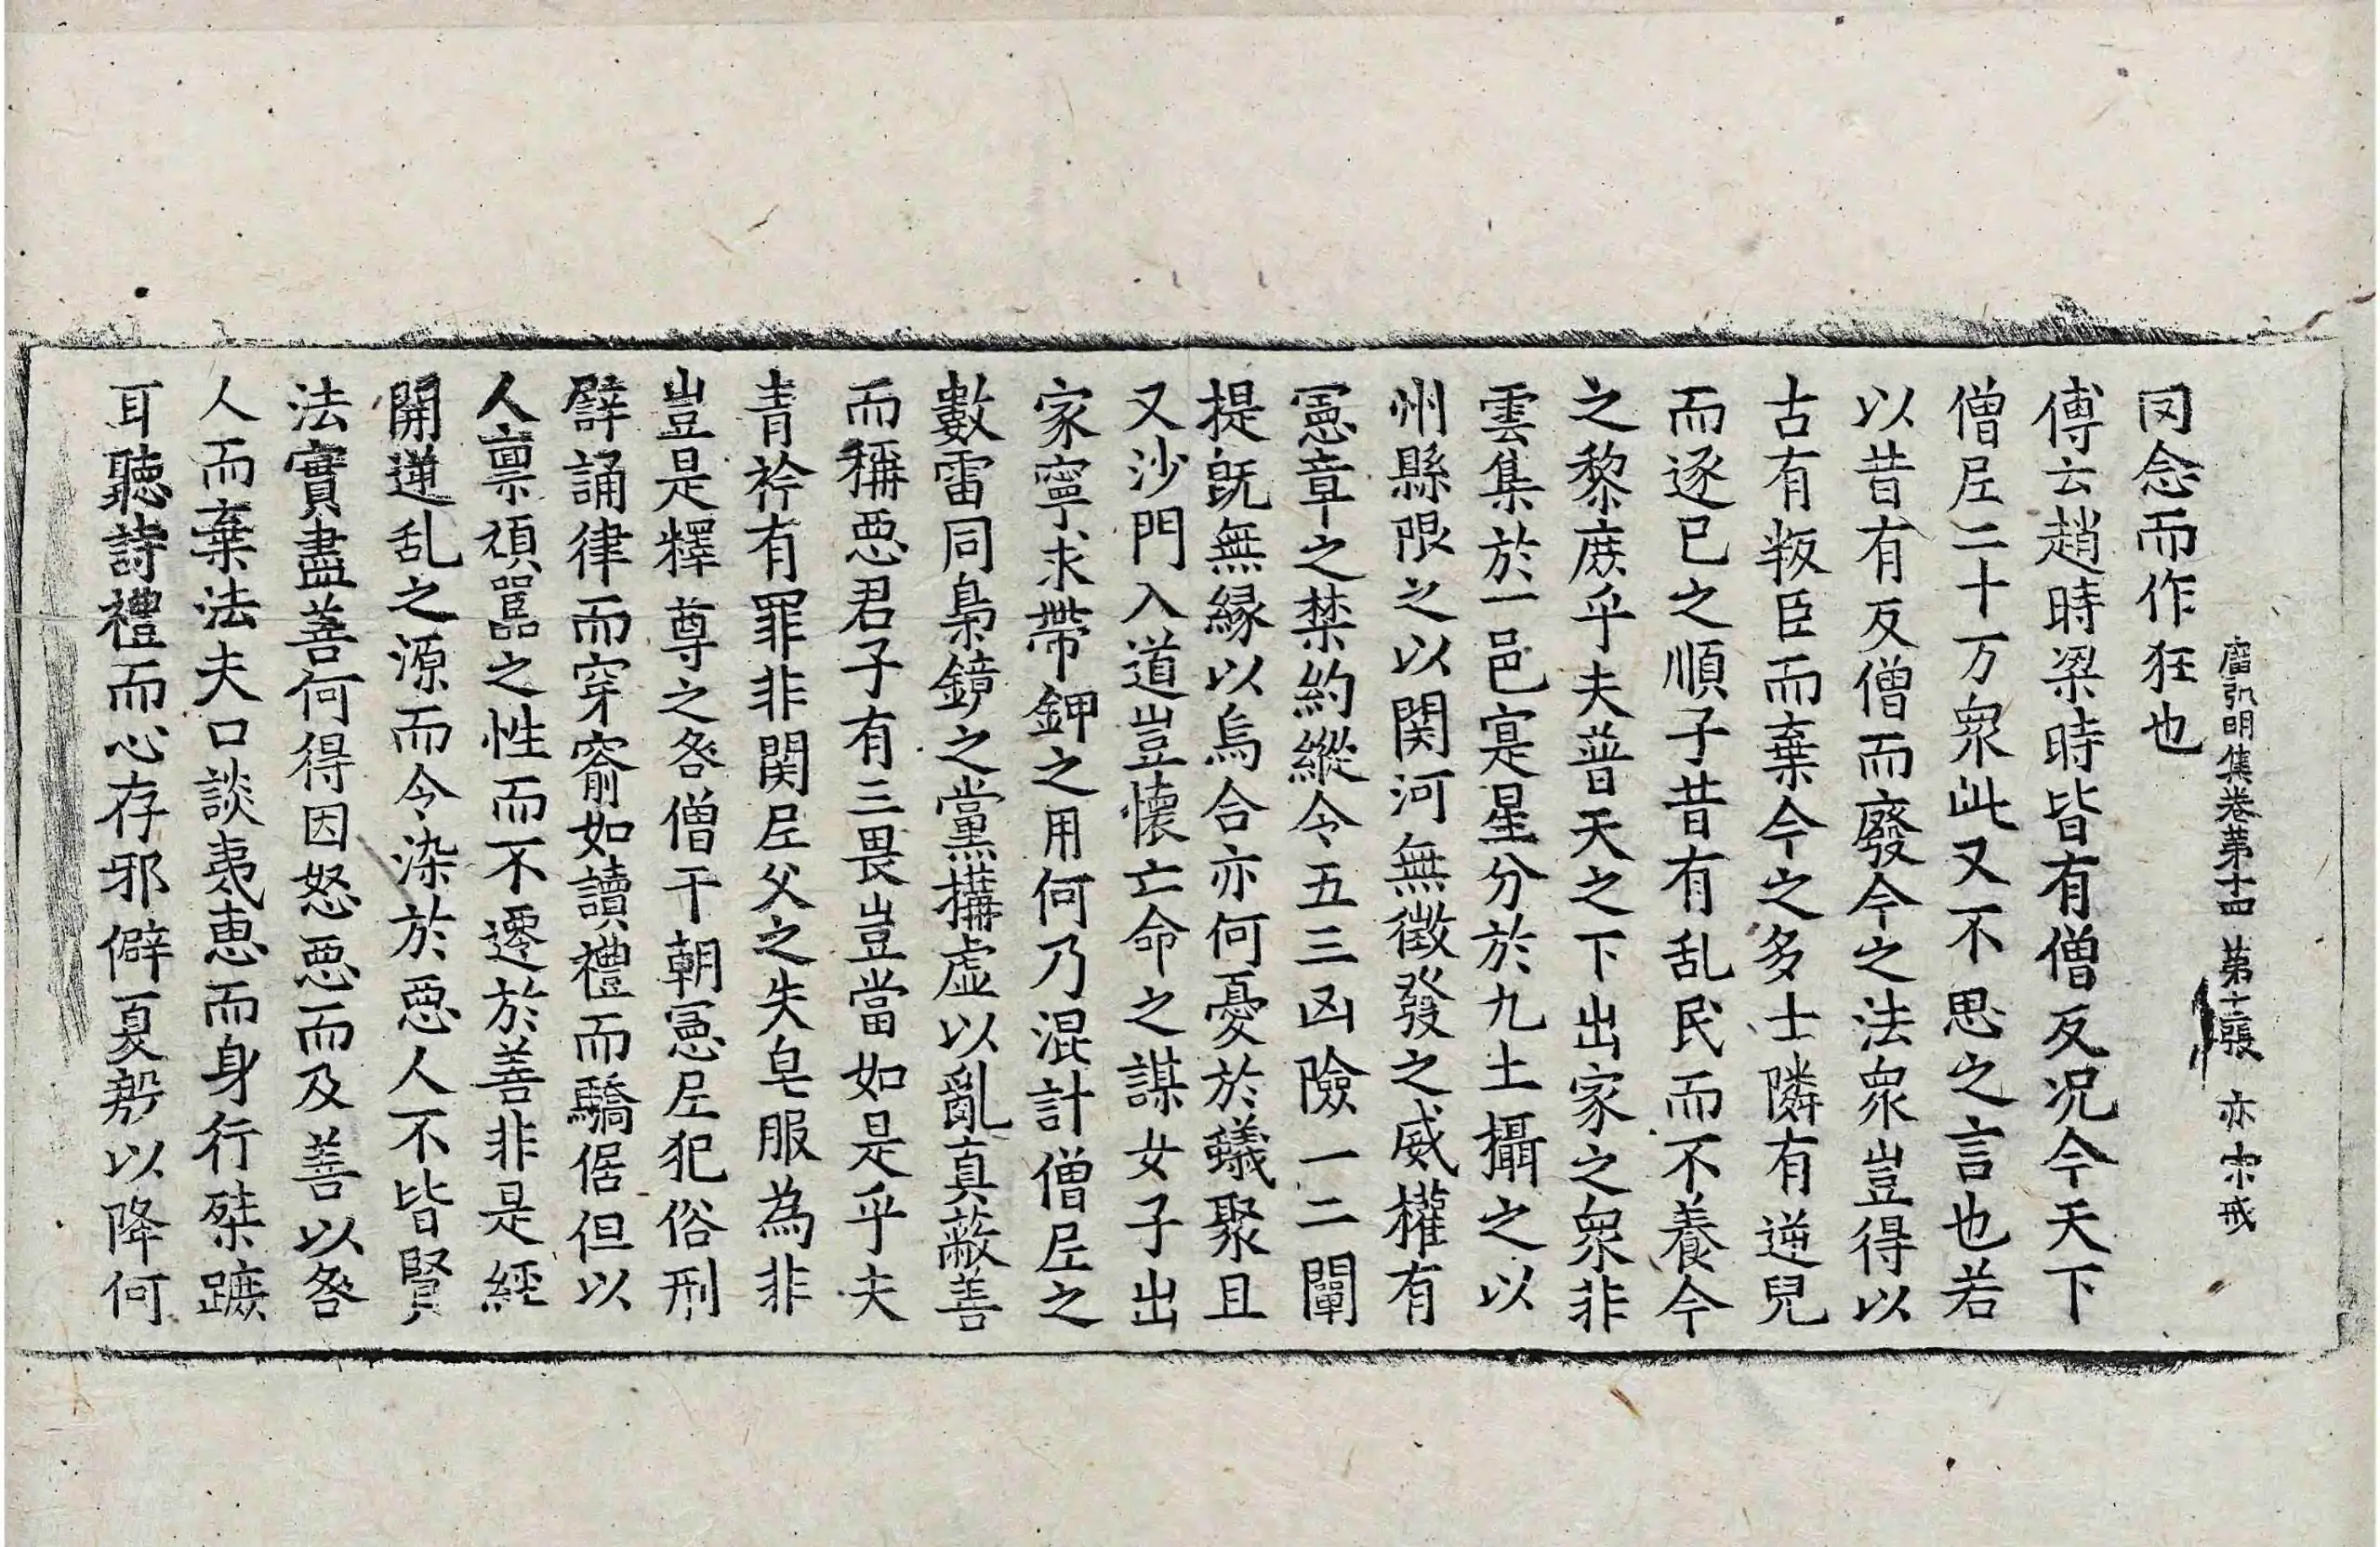 罔念而作狂也
廣弘明集卷第十四 第十二張 亦 宋戒
傅云趙時梁時皆有僧反况今天下
僧尼二十万衆此又不思之言也若
以昔有反僧而廢今之法衆豈得以
古有叛臣而棄今之多士隣有逆兒
而逐己之順子昔有乱民而不養今
之黎庶乎夫普天之下出家之衆非
雲集於一邑寔星分於九土攝之以
州縣限之以関河無徵發之威權有
憲章之禁約縱令五三凶險一二闡
提旣無緣以烏合亦何憂於蟻聚且
又沙門入道豈懷亡命之謀女子出
家寧求帶鉀之用何乃混計僧尼之
數雷同梟鏡之黨搆虛以亂真蔽善
而稱惡君子有三畏豈當如是乎夫
青衿有罪非関尼父之失皂服為非
豈是釋尊之咎僧干朝憲尼犯俗刑
譬誦律而穿窬如讀禮而驕倨但以
人禀頑嚚之性而不遷於善非是經
開逆乱之源而令染於惡人不皆賢
法實盡善何得因怒惡而及善以咎
人而棄法夫口談夷惠而身行桀蹠
耳聽詩禮而心存邪僻夏殷以降何